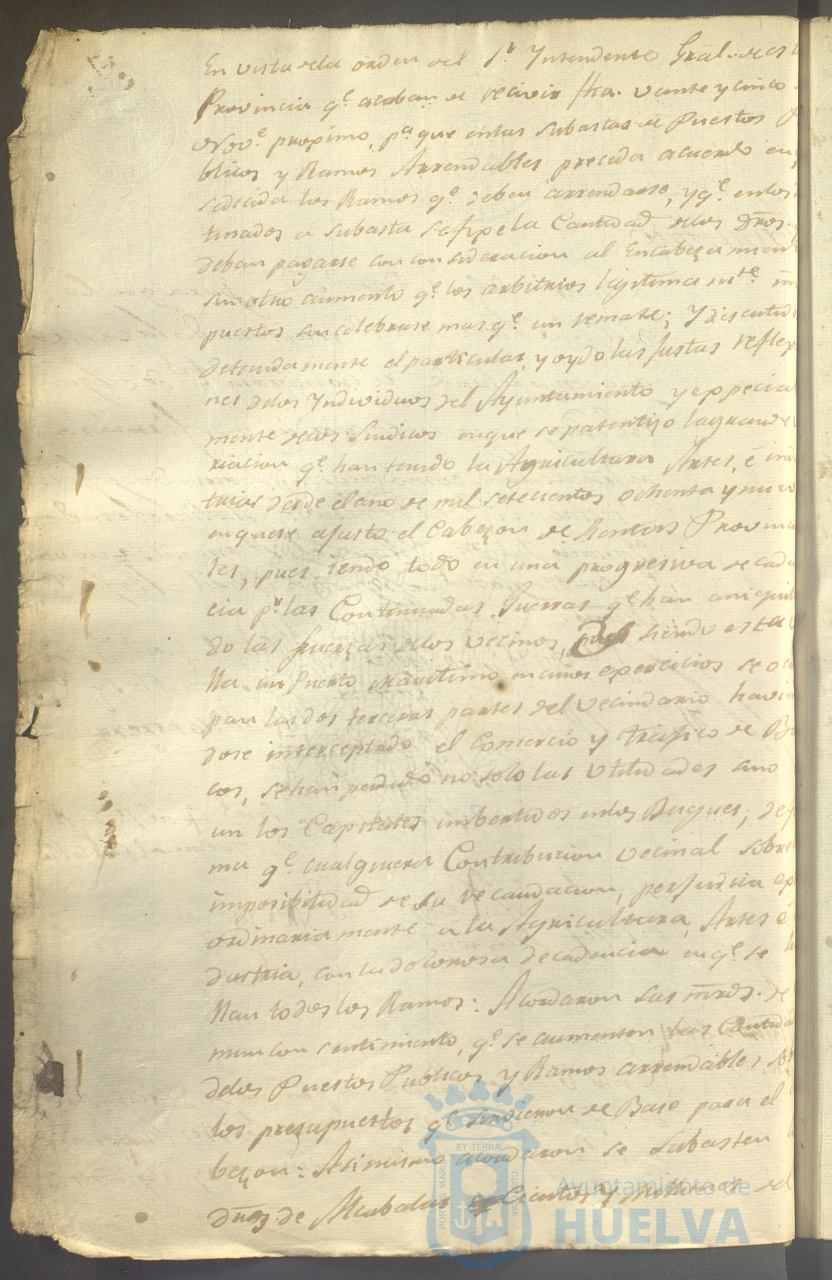 En vista dela orden del Sr. Yntendente Gral. de est
Provincia qe. acaban de recivir fha. vante y cinco
de Nove. proximo, pa. que enlas subastas de Puestos P
blicos y Ramos Arrendables preceda acuerdo en
sedecida los Ramos qe. deben arrendarse, y qe. enlos
tinados a subasta se fixe la Cantidad delos dros.
deban pagarse con consideracion al Encabezamien
sin otro aumento qe. los arbitrios legitimamte. im
puestos sin celebrarse mas qe. un remate; Y discutid
detenidamente el particular, y oydo las Justas reflex
nes delos Yndividuos del Ayuntamiento y expecia
mente delos Sindicos enque se patentizo la grande
riacion qe. han tenido la Agricultura Artes, é ind
trias desde el ano de mil setecientos ochenta y nuev
en que se ajusto el Cabezon de Rentas Provincia
les, pues iendo todo en una progresiva decade
cia pr. las Continuadas Guerras qe. han aniquila
do las fuerzas delos vecinos, pues siendo esta V
lla un Puerto maritimo en cuios exercicios se ocu
pan las dos terceras partes del vecindario havien
dose interceptado el Comercio y trafico de Bar
cos, se han perdido no solo las Utilidades sino
un los Capitales imbertidos enlos Buques; de for
ma qe. cualquiera Contribucion vecinal sobre
imposibilidad de su recaudacion, perjudica ex
ordinariamente a la Agricultura, Artes é
dustria, con la dolorosa decadencia en qe. se h
llan todos los Ramos: Acordaron sus mrds. de
mun consentimiento, qe. se aumenten las Cantida
delos Puestos Publicos y Ramos arrendables
los presupuestos qe. sirvieron de Base para el
bezon: Asimismo acordaron se Subasten
dros. de Alcabalas Cientos y Millones del
PORTUS MARIS ET TERRAE CUSTODIA
Ayuntamiento de
HUELVA